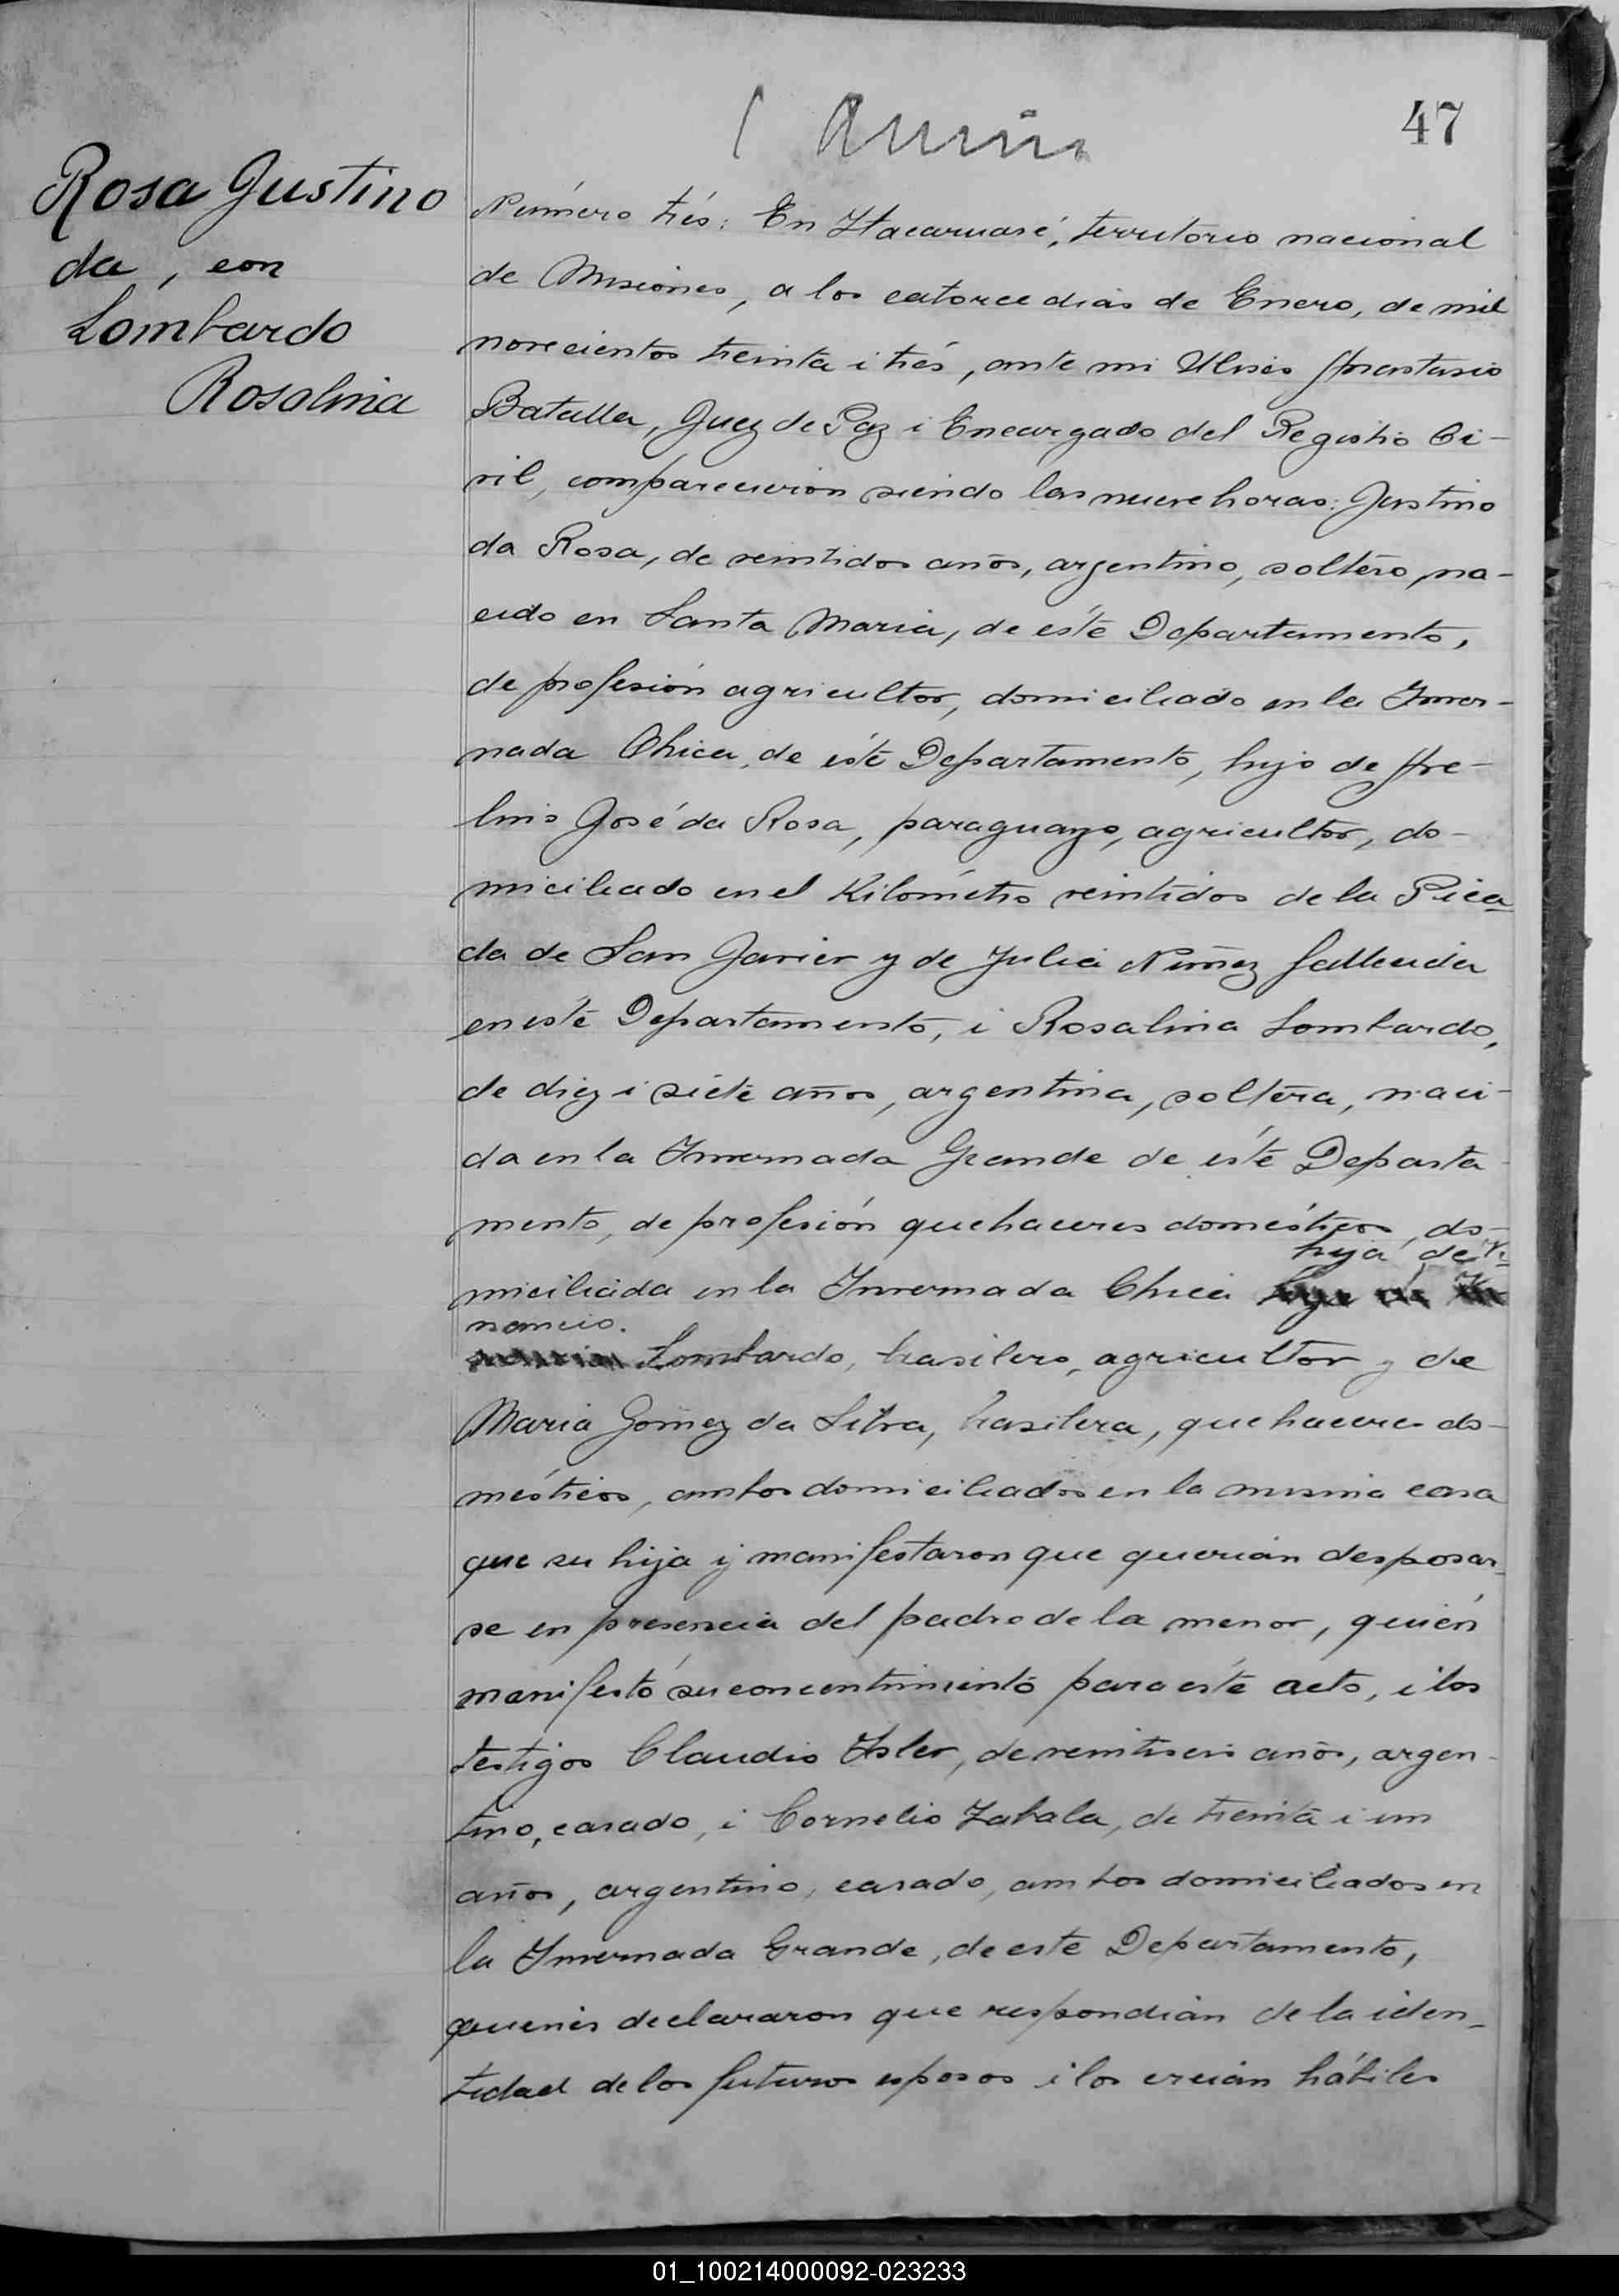 47
Rosa Justino
da, con
Lombardo
Rosalina
Número trés: En Itacaruaré, territorio nacional
de Misiones, a los catorce dias de Enero, de mil
novecientos treinta i trés, ante mi Ulises Anastasio
Batalla, Juez de Paz i Encargado del Registro Ci-
vil, comparecieron siendo las nueve horas: Justino
da Rosa, de veintidos años, argentino, soltero, na-
cido en Santa Maria, de éste Departamento,
de profesión agricultor, domiciliado en la Inver-
nada Chica, de éste Departamento, hijo de Ave-
lino José da Rosa, paraguayo, agricultor, do-
miciliado en el Kilómetro veintidos de la Pica
da de San Javier y de Julia Nuñez fallecida
en éste Departamento, i Rosalina Lombardo,
de diez i siete años, argentina, soltera, naci-
da en la Invernada Grande de éste Departa
mento, de profesión quehaceres domésticos, do-
hija de Ve
miciliada en la Invernada Chica
nancio.
Lombardo, brasilero, agricultor y de
Maria Gomez da Silva, brasilera, quehaceres do-
mésticos, ambos domiciliados en la misma casa
que su hija y manifestaron que querian desposar
se en presencia del padre de la menor, quién
manifestó su concentimiento para éste acto, i los
testigos Claudio Isler, de veintiseis años, argen-
tino, casado, i Cornelio Zabala, de treinta i un
años, argentino, casado, ambos domiciliados en
la Invernada Grande, de este Departamento,
quienes declararon que respondian de la iden-
tidad de los futuros esposos i los creian hábiles
01_100214000092-023233